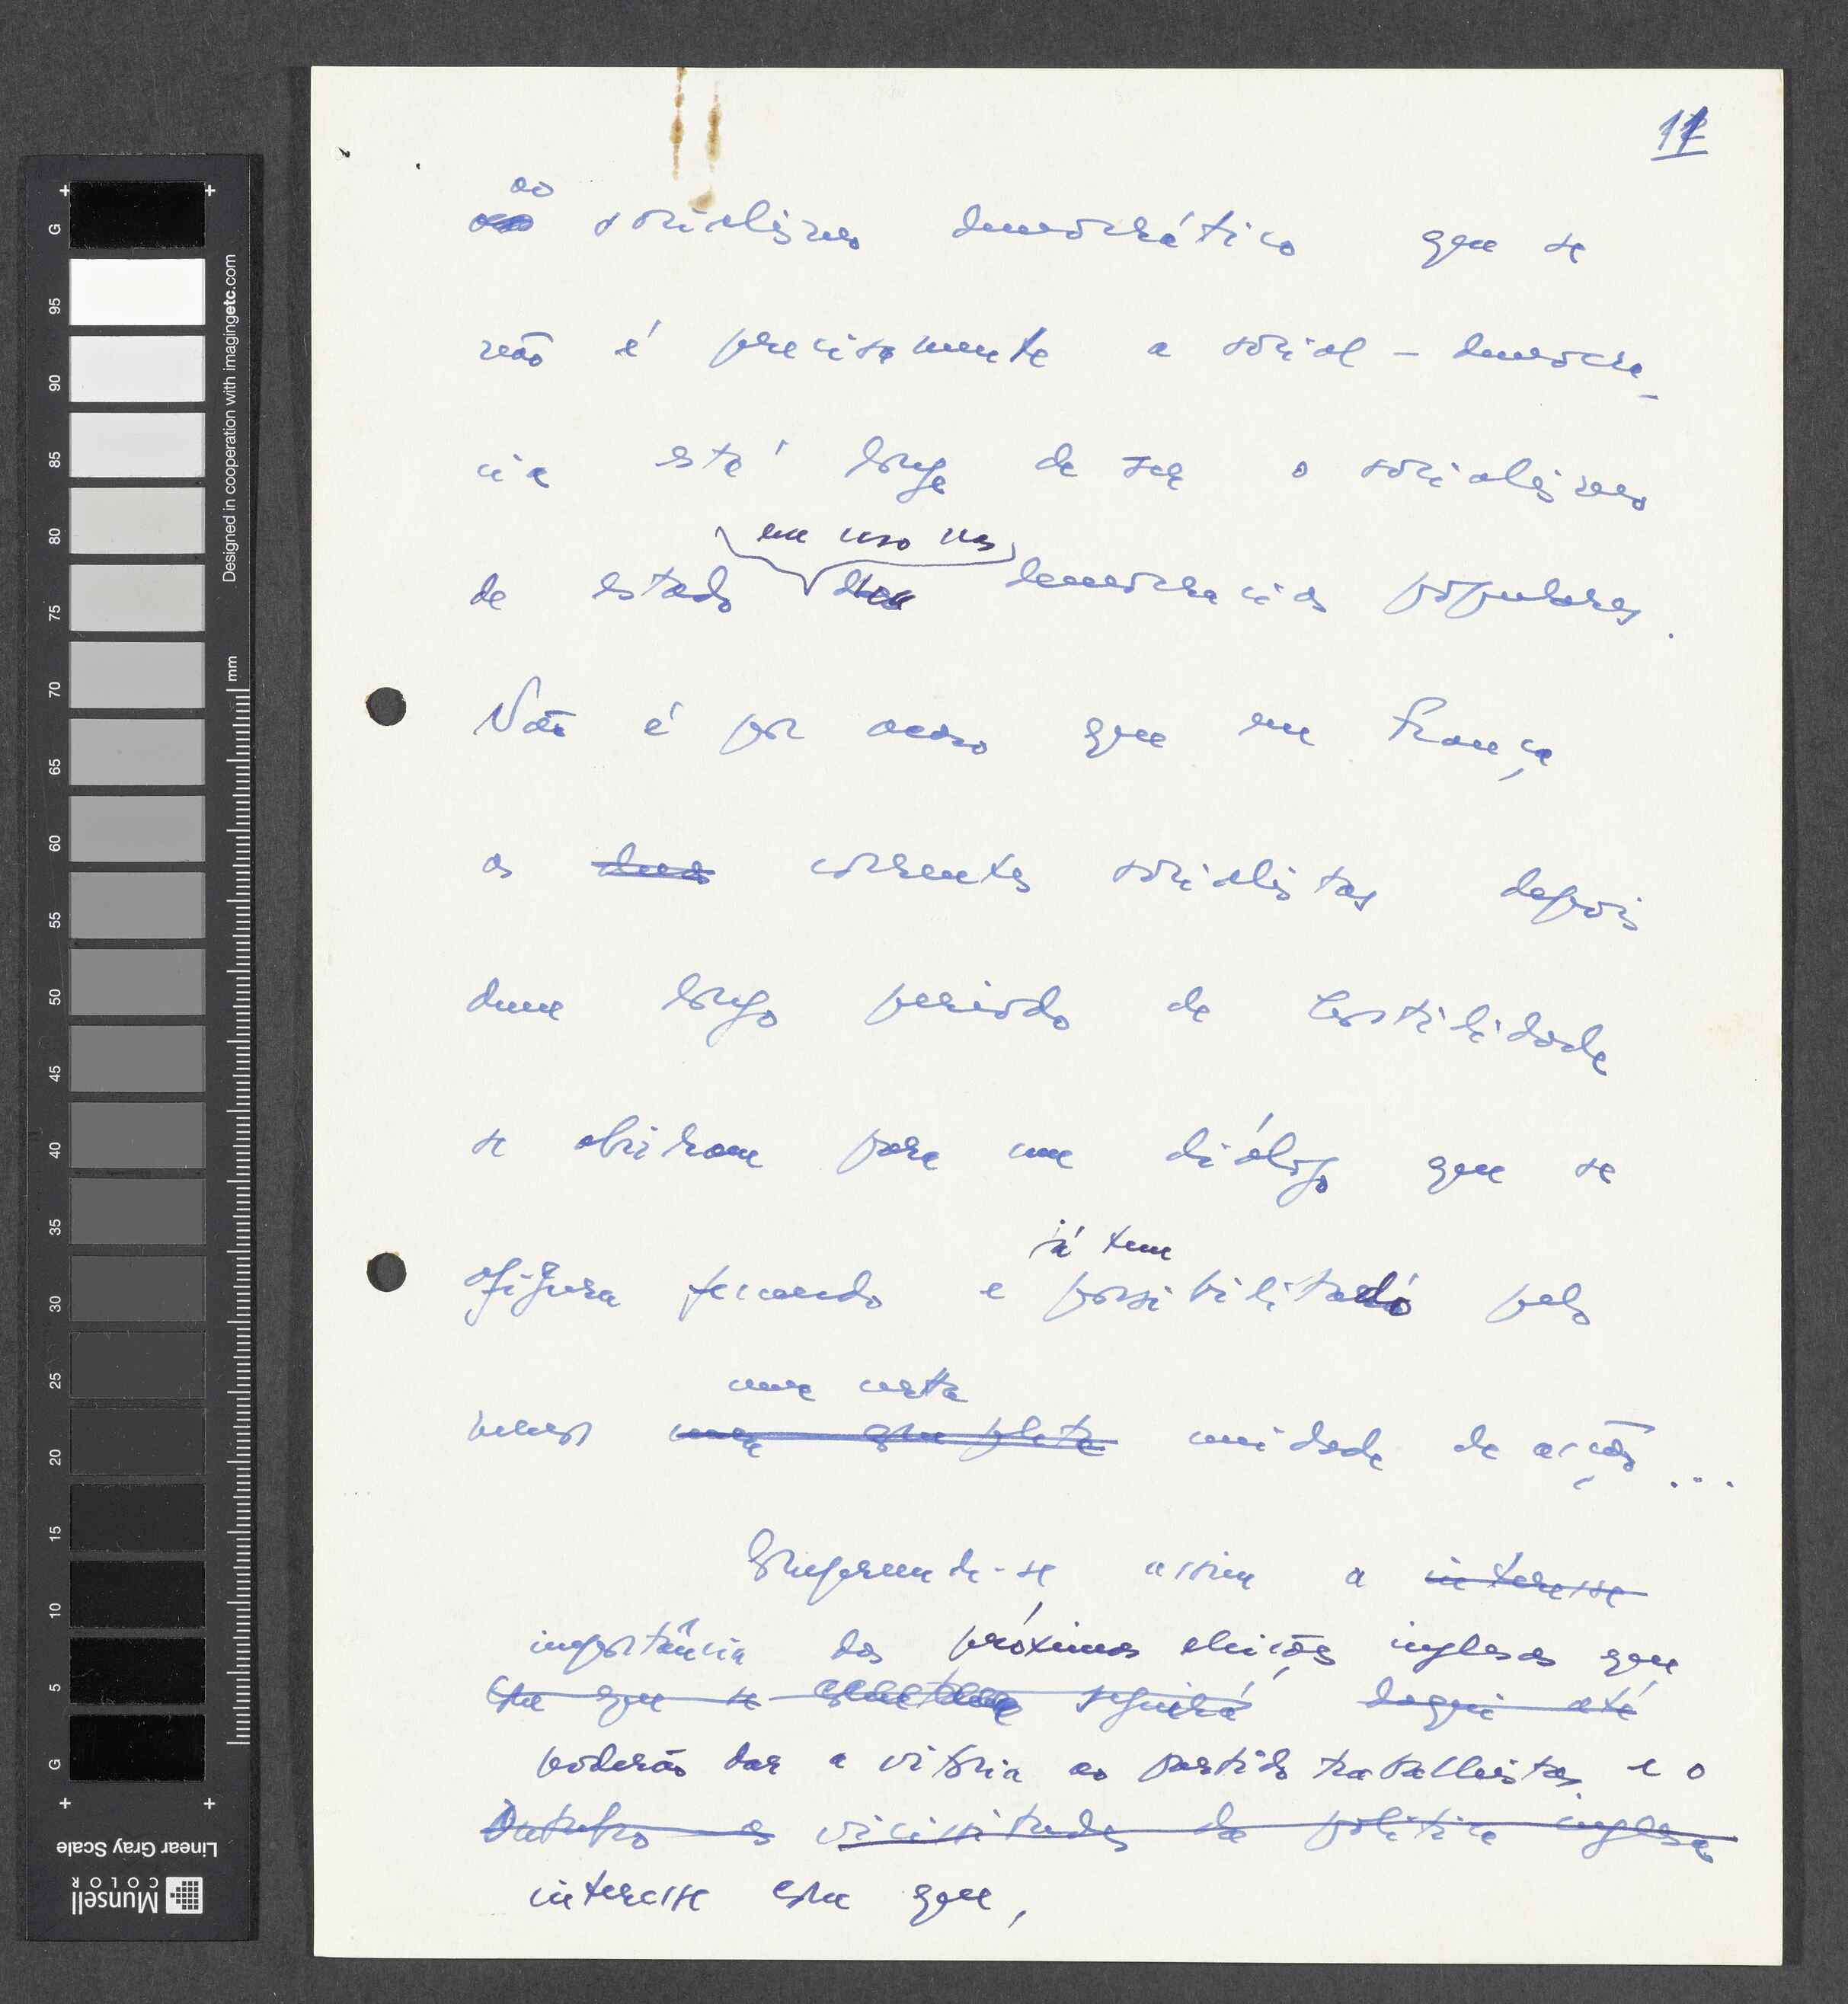 11
ao
socialismo democrático que se
não é precisamente a social-democra-
cia está longe de ser o socialismo
em uso nas
de estado democracias populares.
Não é por acaso que em França
as duas correntes socialistas depois
dum longo período de hostilidade
se abriram para um diálogo que se
já tem
afigura fecundo e possibilitado pelo
uma certa
menos uma completa unidade de acção...
Compreende-se assim a interesse
importância das próximas eleições inglesas que
com que se seguirá daqui até
poderão dar a vitória ao partido trabalhista, e o
Outubro as vicissitudes da política inglesa
interesse com que,
Designed in cooperation with imagingetc.com
mm
G 95 90 85 80 75 70 65 60 55 50 45 40 35 30 25 20 15 10 5 G
Linear Gray Scale
Munsell
COLOR